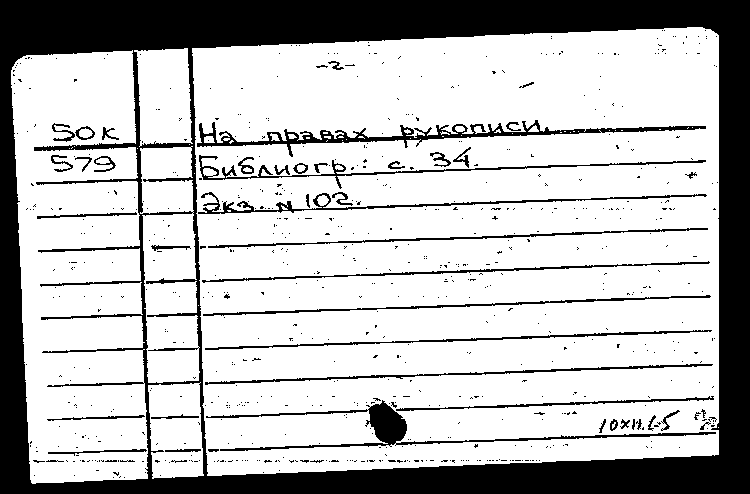 -2-
50к На правах рукописи.
579 Библиогр.: с. 34.
Экз. N 102.